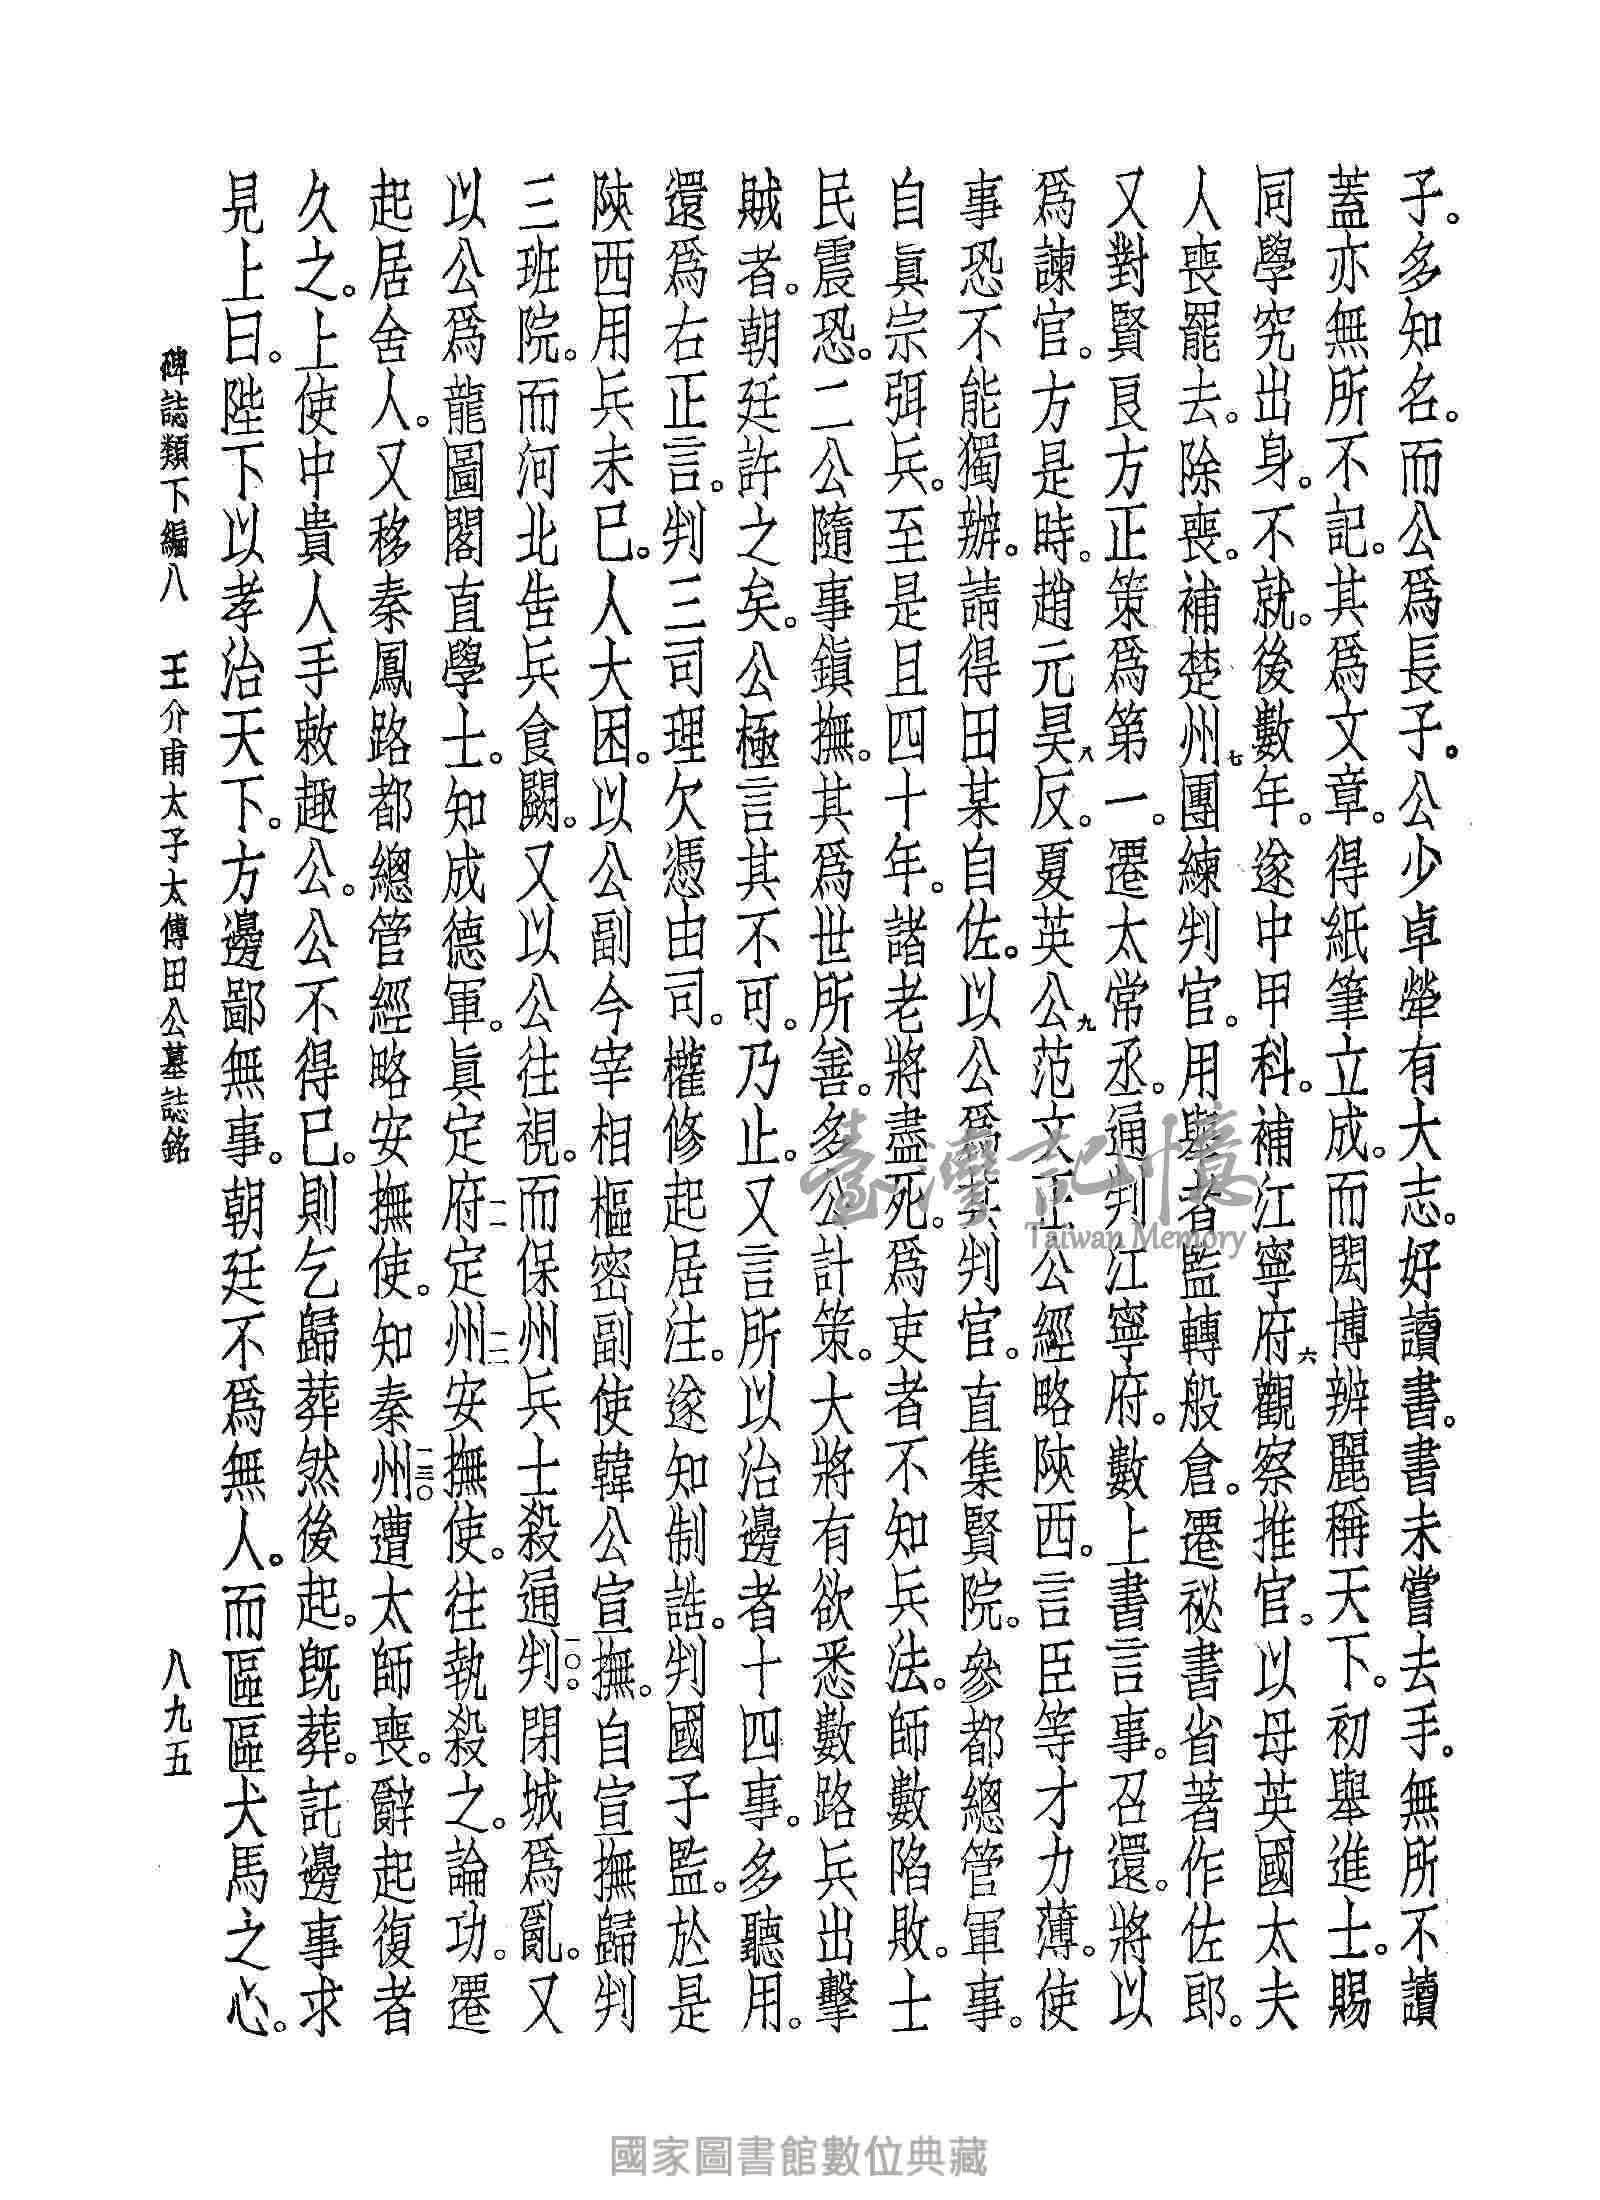 子。多知名。而公爲長子。公少卓犖有大志。好讀書。書未嘗去手。無所不讀
蓋亦無所不記。其爲文章。得紙筆立成。而閎博辨麗稱天下。初舉進士。賜
同學究出身。不就。後數年。遂中甲科。補江寧府六觀察推官。以母英國太夫
人喪罷去。除喪。補楚州七團練判官。用舉者監轉般倉。遷祕書省著作佐郎。
又對賢良方正策爲第一。遷太常丞。通判江寧府。數上書言事。召還。將以
爲諫官。方是時。趙元昊八反。夏英公九范文正公經略陝西。言臣等才力薄。使
事恐不能獨辦。請得田某自佐。以公爲其判官。直集賢院。參都總管軍事。
自眞宗弭兵。至是且四十年。諸老將盡死。爲吏者不知兵法。師數陷敗。士
民震恐。二公隨事鎭撫。其爲世所善。多公計策。大將有欲悉數路兵出擊
賊者。朝廷許之矣。公極言其不可。乃止。又言所以治邊者十四事。多聽用。
還爲右正言。判三司理欠憑由司。權修起居注。遂知制誥。判國子監。於是
陝西用兵未已。人大困。以公副今宰相樞密副使韓公宣撫。自宣撫歸判
三班院。而河北告兵食闕。又以公往視。而保州兵士殺通判一〇。閉城爲亂。又
以公爲龍圖閣直學士。知成德軍。眞定府一一定州一二安撫使。往執殺之。論功。遷
起居舍人。又移秦鳳路都總管經略安撫使。知秦州一三。遭太師喪。辭起復者
久之。上使中貴人手敕趣公。公不得已。則乞歸葬然後起。旣葬。託邊事求
見上曰。陛下以孝治天下。方邊鄙無事。朝廷不爲無人。而區區犬馬之心。
碑誌類下編八 王介甫太子太傅田公墓誌銘 八九五
臺灣記憶
Taiwan Memory
國家圖書館數位典藏